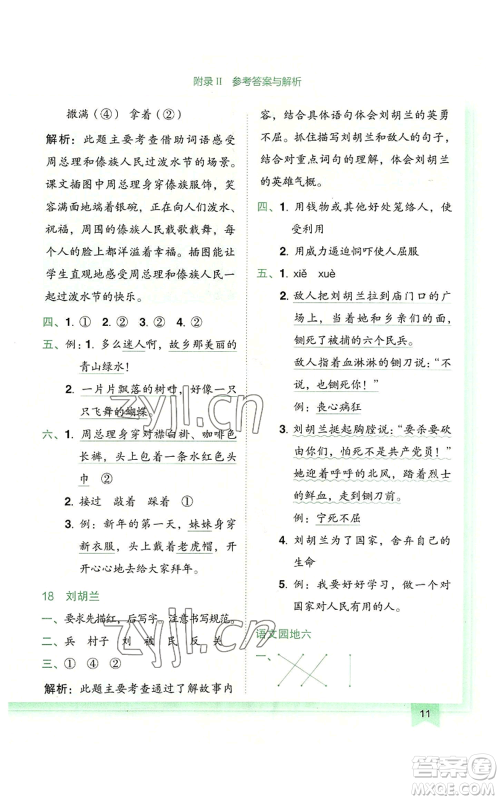 附录Ⅱ 参考答案与解析
撒满（④） 拿着（②）
解析：此题主要考查借助词语感受
周总理和傣族人民过泼水节的场景。
课文插图中周总理身穿傣族服饰，笑
容满面地端着银碗，正在向人们泼水
祝福，周围的傣族人民载歌载舞，每
个人的脸上都洋溢着幸福。插图能让
学生直观地感受周总理和傣族人民一
起过泼水节的快乐。
四、1. ① ② 2. ④ ① ②
五、例：1. 多么迷人啊，故乡那美丽的
青山绿水！
2. 一片片飘落的树叶，好像一只
只飞舞的蝴蝶。
六、1. 周总理身穿对襟白褂、咖啡色
长裤，头上包着一条水红色头
巾 ②
2. 接过 敲着 踩着 ①
3. 例：新年的第一天，妹妹身穿
新衣服，头上戴着老虎帽，开
开心心地给大家拜年。
18 刘胡兰
一、要求先描红，后写字，注意书写规范。
二、兵 村子 刘 被 民 反 关
三、① ④ ②
解析：此题主要考查通过了解故事内
容，具体语句体会刘胡兰的英勇
不屈。抓住描写刘胡兰和敌人的句子，
通过对重点词句的理解，体会刘胡兰
的英雄气概。
四、1. 用钱物或其他好处笼络人，使
受利用
2. 用威力逼迫恫吓使人屈服
五、1. xiě xuè
2. 敌人把刘胡兰拉到庙门口的广
场上，当着她和乡亲们的面，
铡死了被捕的六个民兵。
敌人指着血淋淋的铡刀说：“不
说，也铡死你！”
例：丧心病狂
3. 刘胡兰挺起胸膛说：“要杀要砍
由你们，怕死不当共产党员！”
她迎着呼呼的北风，踏着烈士
的鲜血，走到铡刀前。
例：宁死不屈
4. 刘胡兰为了国家，舍弃自己的
生命。
例：我要好好学习，做一个对
国家对人民有用的人。
语文园地六
一、
11
zyjl.cn
zyjl.cn
答案圈
MXQE.COM